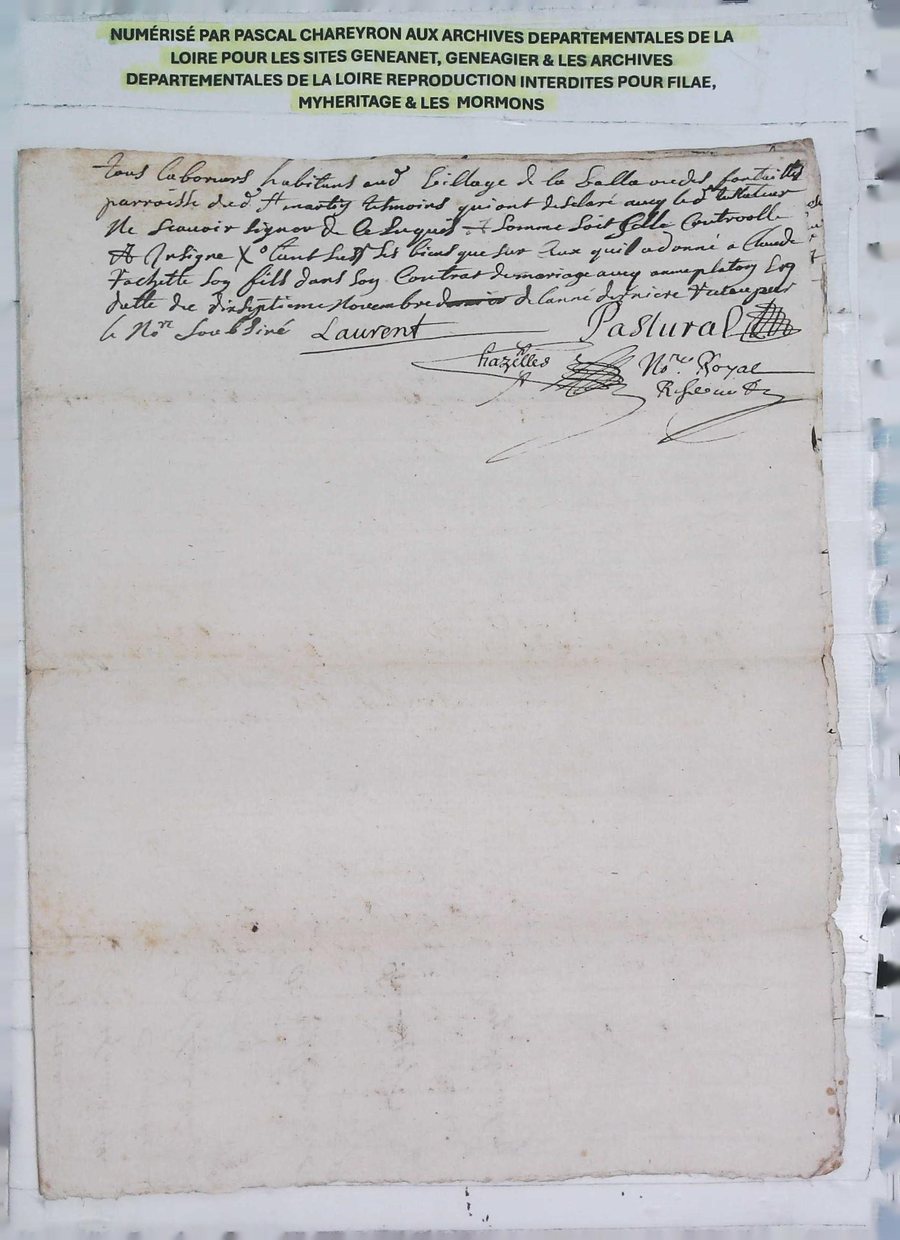 NUMÉRISÉ PAR PASCAL CHAREYRON AUX ARCHIVES DEPARTEMENTALES DE LA
LOIRE POUR LES SITES GENEANET, GENEAGIER & LES ARCHIVES
DEPARTEMENTALES DE LA LOIRE REPRODUCTION INTERDITES POUR FILAE,
MYHERITAGE & LES MORMONS
tous laboreurs habitans aud village de la
parroisse de st martin tesmoins qui ont desclaré avecq led testateur
Ne scavoir signer de ce enquis et somme soit controolle
et Insigne tant sur les biens que sur ceux quil a donné a Claude
Vachette son fils dans son Contrat de mariage avecq anne platon
datte du dixseptieme Novembre de lanné derniere receu par
le Nore Soubsiné Laurent Pastural
Chazelles Nore Royal